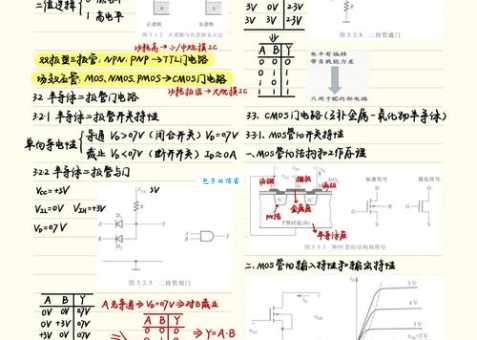 二值逻辑
1 高电平
功耗高→小/中规模IC
双极型三极管,NPN,PNP→TTL门电路
场效应管,MOS,NMOS,PMOS→CMOS门电路
功耗极低→大规模IC
3.2 半导体二极管门电路
3.2.1 半导体二极管开关特性
单向导电性
导通 VD>0.7V (闭合开关) VD=0.7V
截止 VD<0.7V (断开开关) ID≈0A
3.2.2 半导体二极管与门
VCC=+3V
VIL=0V VIH=+3V
VD=0.7V
3V
图 3.2.5 二极管与门
A B Y
0V 0V 0.7V
0V +3V 0.7V
+3V 0V 0.7V
A先导通→VD=0.7V→对B截止
A B Y
0 0 0
⇒Y=A·B
3V 0V 2.3V
3V 3V 2.3V
A B Y
0 0 0
0 1 1
1 0 1
1 1 1
电平有偏移
带负载能力差
只用于IC内部电路
3.3. CMOS门电路(互补金属-氧化物半导体)
3.3.1. MOS管的开关特性
一、MOS管的结构和工作原理
标准符号
简化符号
源极
栅极
漏极
金属层
半导体层
二、MOS管的输入特性和输出特性